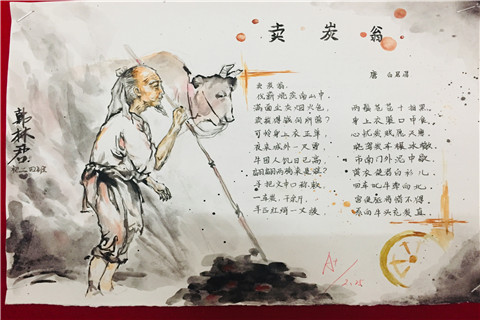 卖炭翁
唐 白居易
卖炭翁,
伐薪烧炭南山中。
满面尘灰烟火色,
两鬓苍苍十指黑。
卖炭得钱何所营?
身上衣裳口中食。
可怜身上衣正单,
心忧炭贱愿天寒。
夜来城外一尺雪,
晓驾炭车辗冰辙。
牛困人饥日已高,
市南门外泥中歇。
翩翩两骑来是谁?
黄衣使者白衫儿。
手把文书口称敕,
回车叱牛牵向北。
一车炭,千余斤,
宫使驱将惜不得。
半匹红绡一丈绫,
系向牛头充炭直。
韩林君